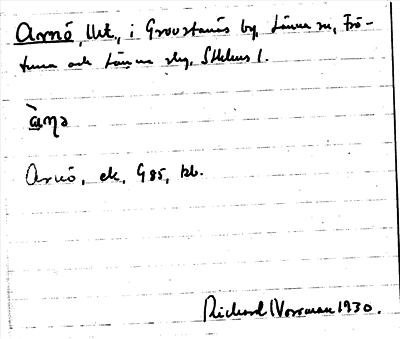 Arnö, lht., i Grovstanäs by, Länna sn, Frö-
tuna och Länna skg, Sthlms l.
Arnö, ek. G 85, kb.
Richard Norrman 1930.